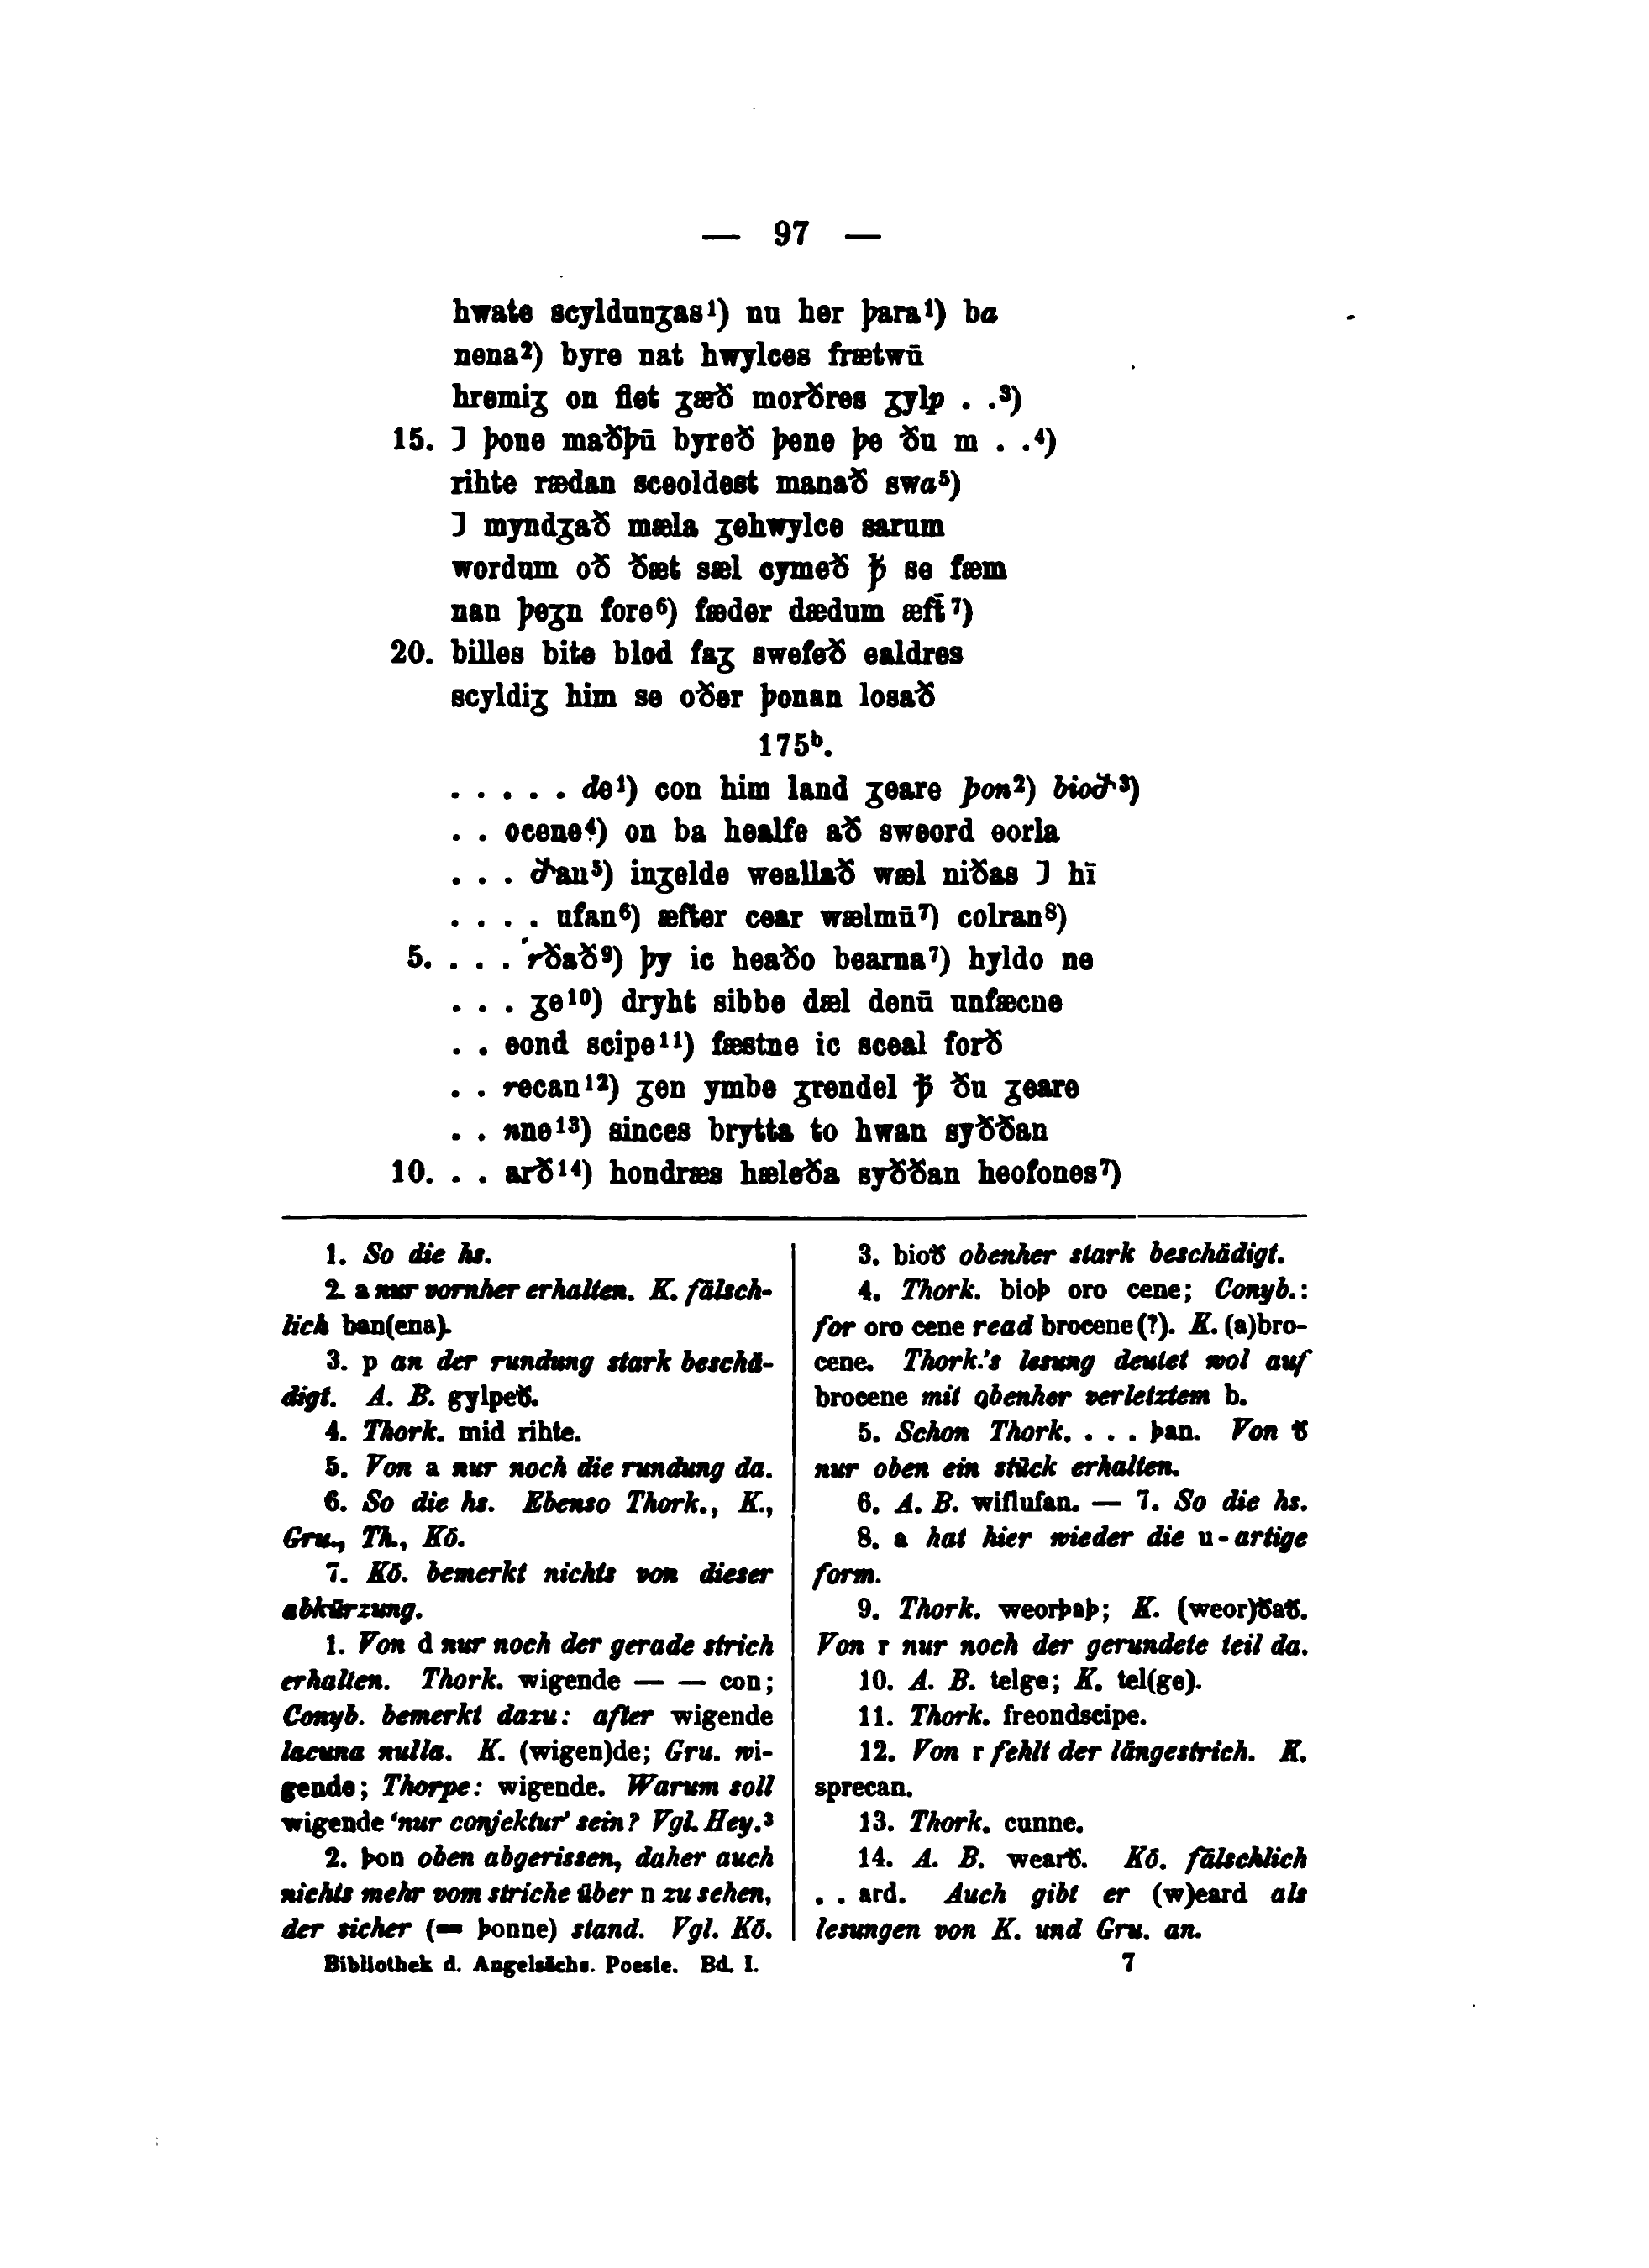 — 97 —
hwate scyldunʒas¹) nu her þara¹) ba
nena²) byre nat hwylces frætwū
hremiʒ on flet ʒæð morðres ʒylp . .³)
15. ⁊ þone maðþū byreð þene þe ðu m . .⁴)
rihte rædan sceoldest manað swa⁵)
⁊ myndʒað mæla ʒehwylce sarum
wordum oð ðæt sæl cymeð ꝥ se fæm
nan þeʒn fore⁶) fæder dædum æft̄⁷)
20. billes bite blod faʒ swefeð ealdres
scyldiʒ him se oðer þonan losað
175ᵇ.
. . . . . de¹) con him land ʒeare þon²) bioð³)
. . ocene⁴) on ba healfe að sweord eorla
. . . ðan⁵) inʒelde weallað wæl niðas ⁊ hī
. . . . ufan⁶) æfter cear wælmū⁷) colran⁸)
5. . . . rðað⁹) þy ic heaðo bearna⁷) hyldo ne
. . . ʒe¹⁰) dryht sibbe dæl denū unfæcne
. . eond scipe¹¹) fæstne ic sceal forð
. . recan¹²) ʒen ymbe ʒrendel ꝥ ðu ʒeare
. . nne¹³) sinces brytta to hwan syððan
10. . . arð¹⁴) hondræs hæleða syððan heofones⁷)
1. So die hs.
2. a nur vornher erhalten. K. fälsch-
lich ban(ena).
3. p an der rundung stark beschä-
digt. A. B. gylpeð.
4. Thork. mid rihte.
5. Von a nur noch die rundung da.
6. So die hs. Ebenso Thork., K.,
Gru., Th., Kö.
7. Kö. bemerkt nichts von dieser
abkürzung.
1. Von d nur noch der gerade strich
erhalten. Thork. wigende — — con;
Conyb. bemerkt dazu: after wigende
lacuna nulla. K. (wigen)de; Gru. wi-
gende; Thorpe: wigende. Warum soll
wigende 'nur conjektur' sein? Vgl. Hey.³
2. þon oben abgerissen, daher auch
nichts mehr vom striche über n zu sehen,
der sicher (= þonne) stand. Vgl. Kö.
3. bioð obenher stark beschädigt.
4. Thork. bioþ oro cene; Conyb.:
for oro cene read brocene (?). K. (a)bro-
cene. Thork.'s lesung deutet wol auf
brocene mit obenher verletztem b.
5. Schon Thork. . . . þan. Von ð
nur oben ein stück erhalten.
6. A. B. wiflufan. — 7. So die hs.
8. a hat hier wieder die u-artige
form.
9. Thork. weorþaþ; K. (weor)ðað.
Von r nur noch der gerundete teil da.
10. A. B. telge; K. tel(ge).
11. Thork. freondscipe.
12. Von r fehlt der längestrich. K.
sprecan.
13. Thork. cunne.
14. A. B. wearð. Kö. fälschlich
. . ard. Auch gibt er (w)eard als
lesungen von K. und Gru. an.
Bibliothek d. Angelsächs. Poesie. Bd. I. 7